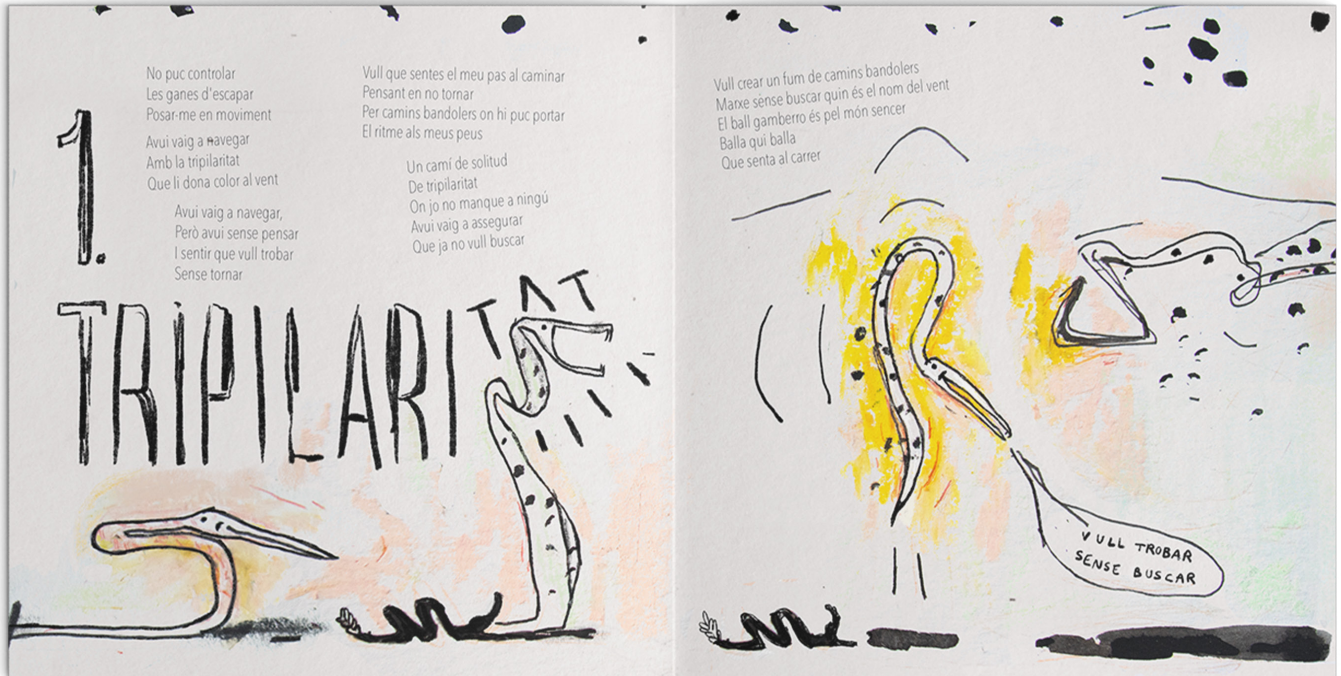 1.
No puc controlar
Les ganes d'escapar
Posar-me en moviment
Avui vaig a navegar
Amb la tripilaritat
Que li dona color al vent
Avui vaig a navegar,
Però avui sense pensar
I sentir que vull trobar
Sense tornar
Vull que sentes el meu pas al caminar
Pensant en no tornar
Per camins bandolers on hi puc portar
El ritme als meus peus
Un camí de solitud
De tripilaritat
On jo no manque a ningú
Avui vaig a assegurar
Que ja no vull buscar
TRIPILARITAT
Vull crear un fum de camins bandolers
Marxe sense buscar quin és el nom del vent
El ball gamberro és pel món sencer
Balla qui balla
Que senta al carrer
VULL TROBAR
SENSE BUSCAR